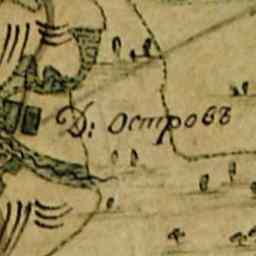 Д: Островъ